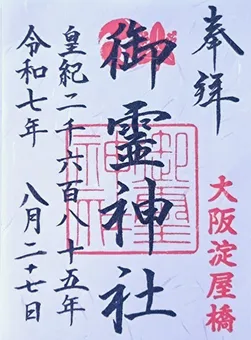 奉拝
大阪淀屋橋
御霊神社
皇紀二千六百八十五年
令和七年 八月二十七日
御霊神社